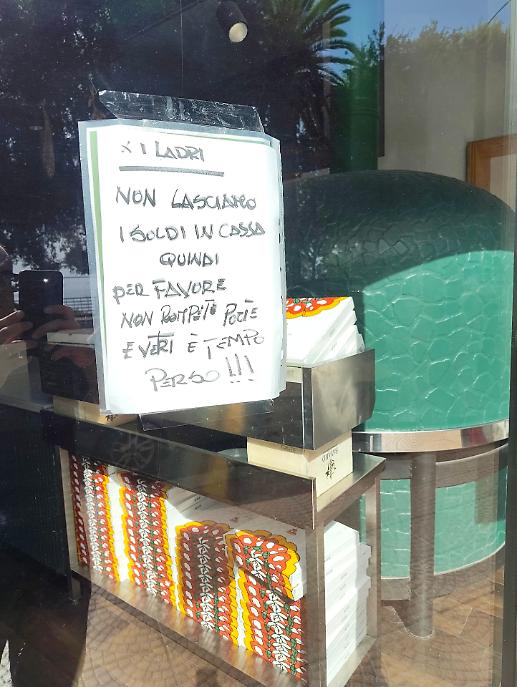 X I LADRI
NON LASCIAMO
I SOLDI IN CASSA
QUINDI
PER FAVORE
NON ROMPETE PORTE
E VETRI È TEMPO
PERSO !!!